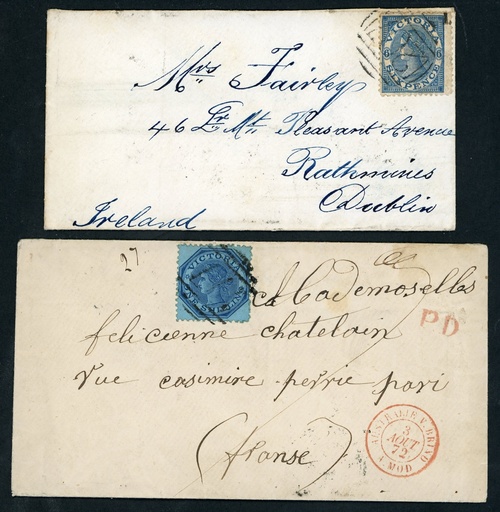 VICTORIA
6 6
SIX PENCE
Mrs Fairley
46 Lr Mt Pleasant Avenue
Rathmines
Dublin
Ireland
27
VICTORIA
ONE SHILLING
Mademoiselles
felicienne chatelain
rue casimire perrie pari
(franse)
PD
AUSTRALIE V. BRIND
3
AOUT
72
A. MOD